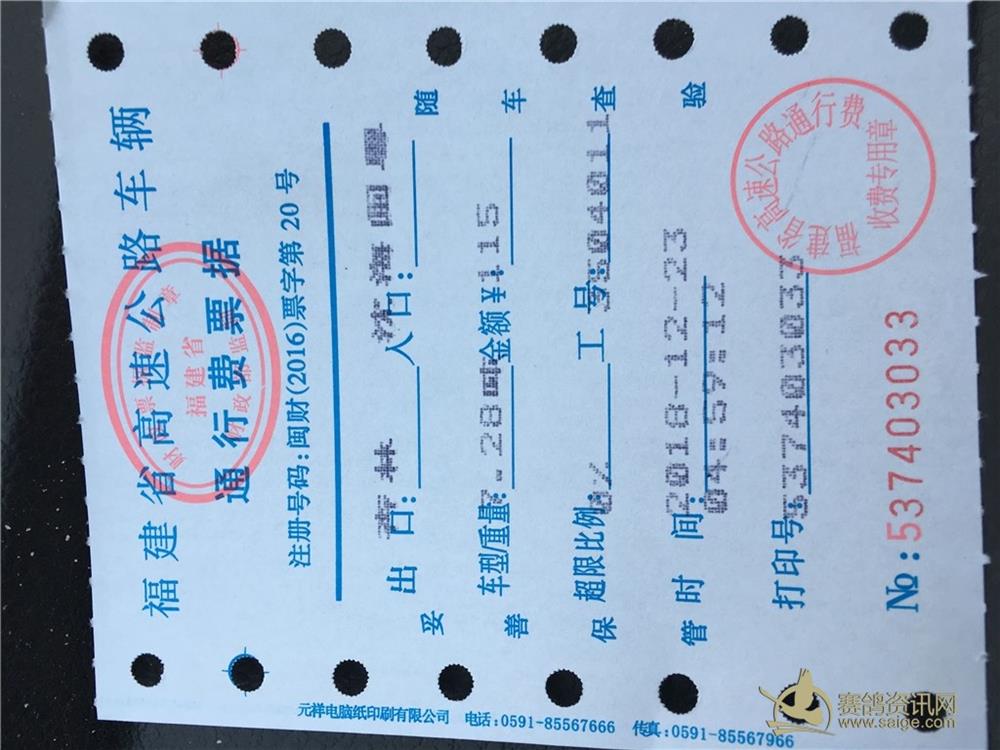 福建省高速公路车辆
通行费票据
财政票据监制
福建省
财政部监制
注册号码:闽财(2016)票字第 20 号
出 口: 入口:
车型/重量: 28吨 金额¥:115
超限比例:0% 工 号:
时 间:2018-12-23
04:59:12
打印号:537403033
№:537403033
随 车 查 验
妥 善 保 管
福建省高速公路通行费
收费专用章
元祥电脑纸印刷有限公司 电话:0591-85567666 传真:0591-85567966
赛鸽资讯网
www.saige.com